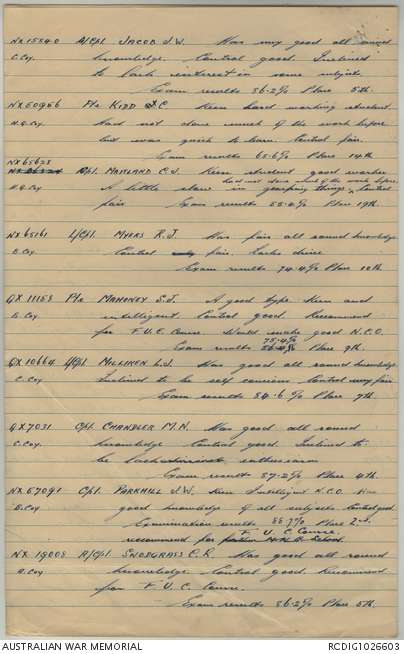 NX15540 A/Cpl JACOB J.W. Has very good all round
C. Coy. knowledge. Control good. Inclined
to lack interest in some subjects
Exam results 86.2% Place 5th.
NX50956 Pte KIDD J.C Keen hard working student
H.Q. Coy. Had not done much of the work before
but was quick to learn. Control fair.
Exam results 65.6% Place 14th
NX65628
Cpl. MAITLAND C.J. Keen student good worker
had not done much of the work before
H.Q. Coy. A little slow in grasping things, Control
fair Exam results 55.4% Place 19th.
NX65161 L/Cpl. MYERS R.J. Has fair all round knowledge
B. Coy. Control fair. Lacks drive
Exam results 74.4% Place 10th.
QX11153 Pte MAHONEY S.J. A good type Keen and
B. Coy. intelligent. Control good. Recommend
for F.U.C. Course. Would make good N.C.O.
75.4%
Exam results Place 9th.
QX10664 L/Cpl MILLIKEN L.J. Has good all round knowledge
C. Coy Inclined to be self conscious Control very fair
Exam results 84.6% Place 7th
QX7031 Cpl. CHANDLER M.N. Has good all round
C. Coy. knowledge Control good. Inclined to
be enthusiasm
Exam result 87.2% Place 4th.
NX57091 Cpl. PARKHILL J.W. Keen Intelligent N.C.O. Has
B. Coy good knowledge of all subjects Control good
Examination results 88.7% Place 2nd.
F.U.C. Course.
recommend for
NX19005 A/Cpl SNODGRASS C.R. Has good all round
A. Coy knowledge. Control good. Recommend
for F.U.C. Course.
Exam results 86.2% Place 5th.
AUSTRALIAN WAR MEMORIAL RCDIG1026603